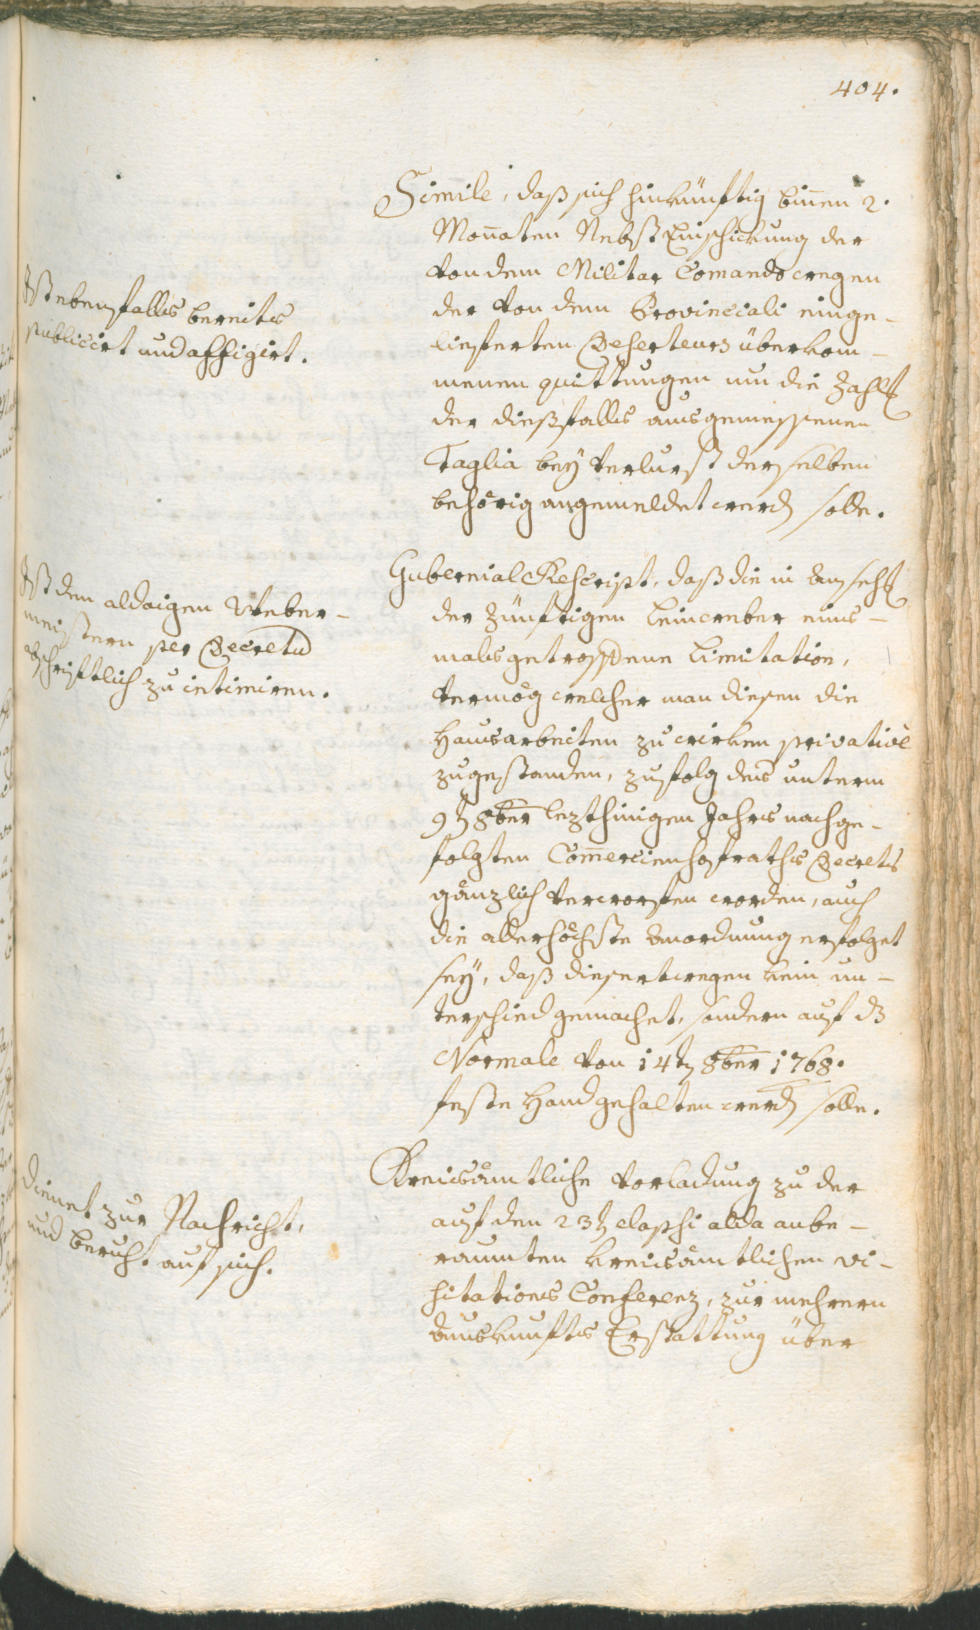 404.
Simile, daß sich hinkünftig binnen 2.
Monaten Nebst Einschickung der
von dem Militar Comando wegen
der von dem Provinciali einge-
lieferten Deserteurs überkom-
menen quittungen um die Zahlg
der dießfalls ausgemessenen
Taglia bey Verlurst derselben
behörig angemeldet werd solle.
Ist ebenfalls bereits
publicirt und affigirt.
Gubernial Rescript, daß die in Ansehg
der Zünftigen Leinweber eins-
mals getroffene Limitation,
Vermög welcher man diesen die
Hausarbeiten zu wirken privativè
zugestanden, zufolg des unterm
9t 8ber lezthinigen Jahrs nachge-
folgten Comercienhofraths Decrets
gänzlich verworfen worden, auch
die allerhöchste Anordnung erfolget
sey, daß diesertwegen kein un-
terschied gemachet, sondern auf ds
Normale von 14t 8ber 1768.
feste Hand gehalten werd solle.
Ist den aldaigen Weber-
meistern per Decretu
abschriftlich zu intimiren.
Kreisämtliche Vorladung zu der
auf den 23t elapsi alda anbe-
raumten kreisämtlichen vi-
sitations Conferenz, zur mehrern
Auskunfts Erstattung über
Dienet zur Nachricht,
und beruht auf sich.